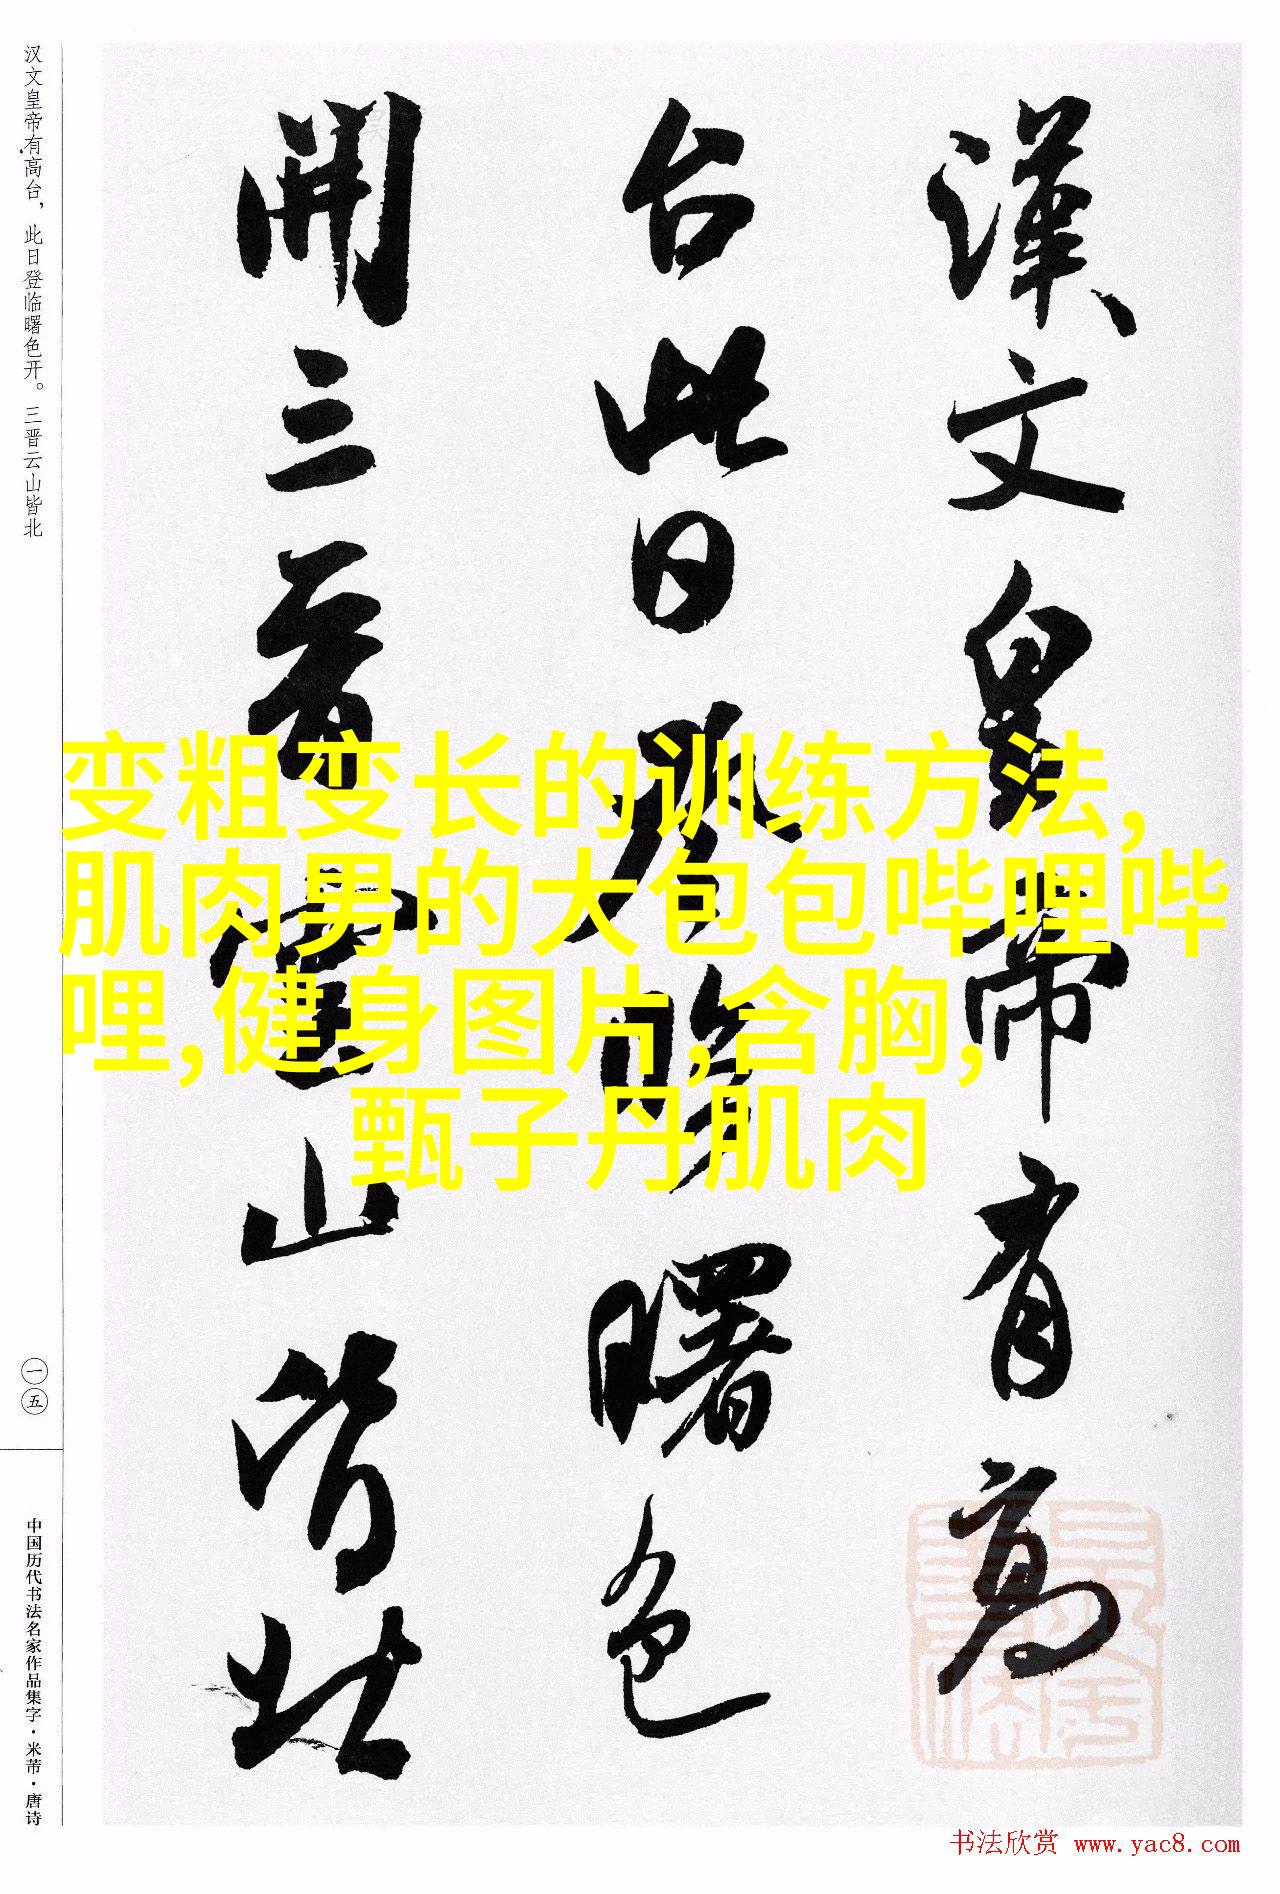 漢文皇帝有高
台此日登臨曙色
開三晉雲山皆北
汉文皇帝有高台，此日登临曙色开。三晋云山皆北
一五
中国历代书法名家作品集字·米芾·唐诗
变粗变长的训练方法,
肌肉男的大包包哔哩哔
哩,健身图片,含胸,
甄子丹肌肉
书法欣赏 www.yac8.com